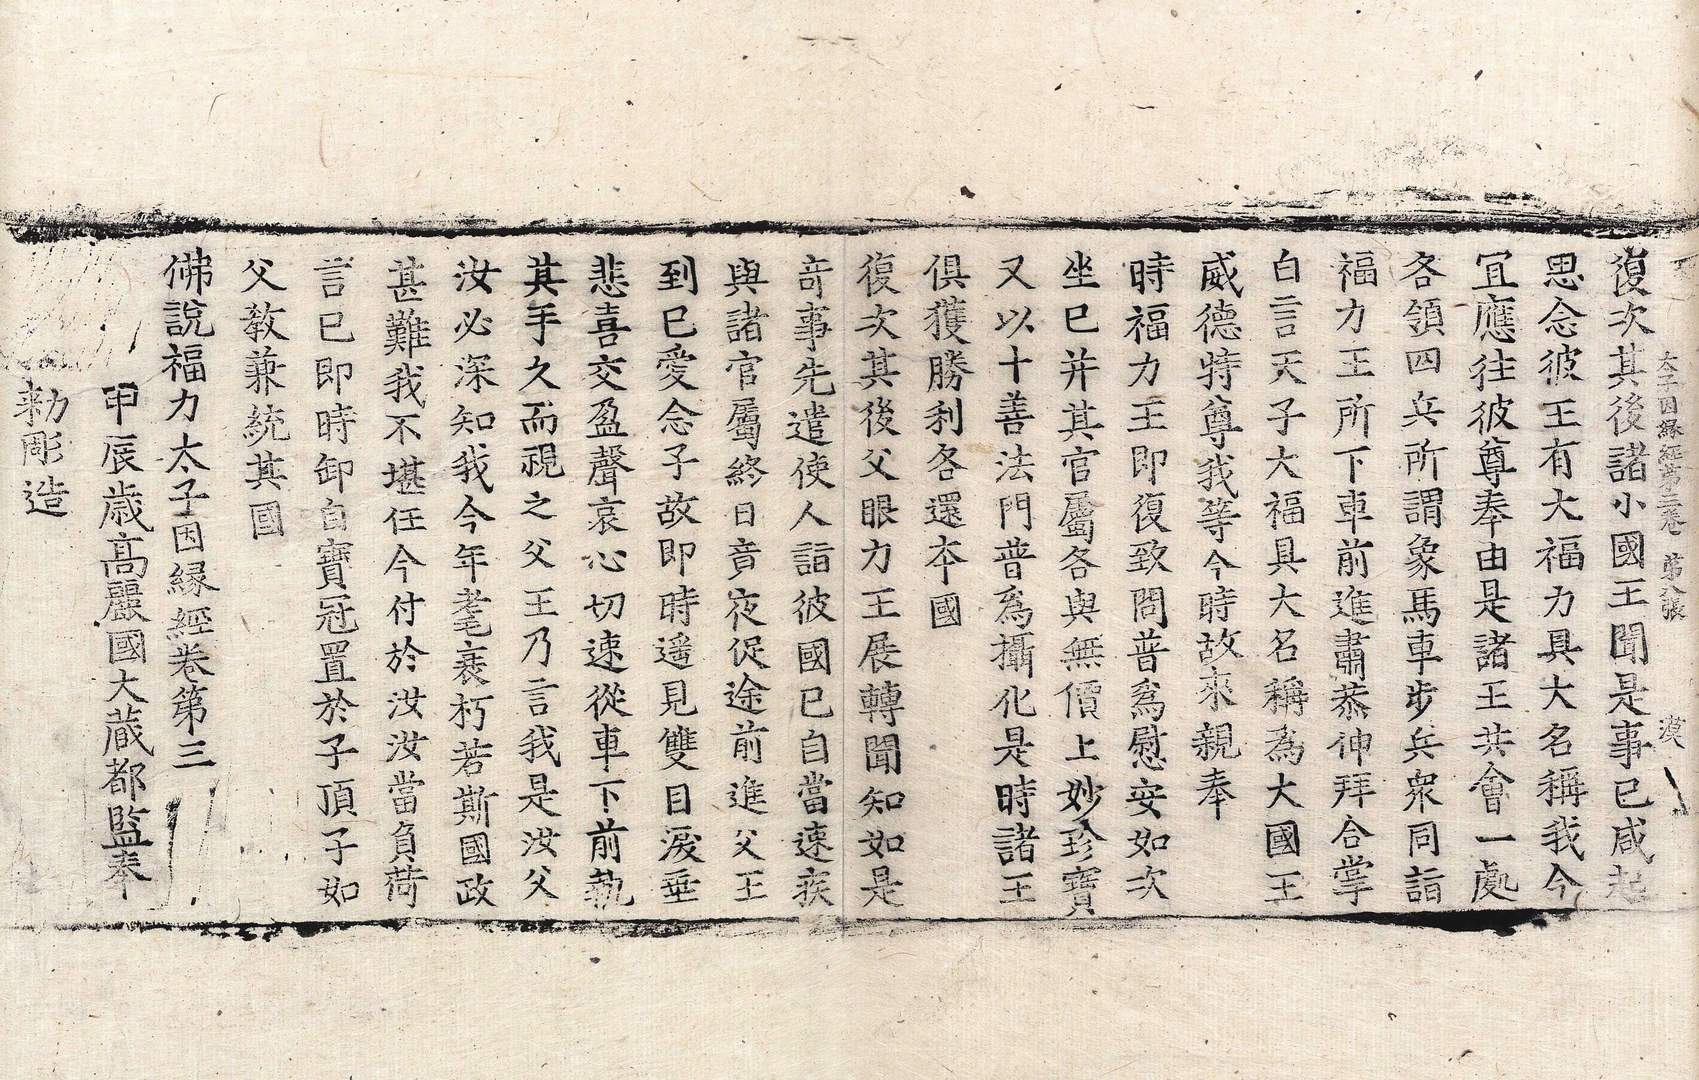 太子因緣經第三卷 第八張 漠
復次其後諸小國王聞是事已咸起
思念彼王有大福力具大名稱我今
冝應往彼尊奉由是諸王共會一處
各領四兵所謂象馬車步兵衆同詣
福力王所下車前進肅恭伸拜合掌
白言天子大福具大名稱為大國王
威德特尊我等今時故來親奉
時福力王即復致問普爲慰安如次
坐已并其官屬各與無價上妙珍寶
又以十善法門普爲攝化是時諸王
俱獲勝利各還本國
復次其後父眼力王展轉聞知如是
奇事先遣使人詣彼國已自當速疾
與諸官屬終日竟夜促途前進父王
到已愛念子故即時遥見雙目淚垂
悲喜交盈聲哀心切速從車下前執
其手久而視之父王乃言我是汝父
汝必深知我今年耄衰朽若斯國政
甚難我不堪任今付於汝汝當負荷
言已即時卸自寶冠置於子頂子如
父教兼統其國
佛說福力太子因緣經卷第三
甲辰歲高麗國大藏都監奉
勅彫造